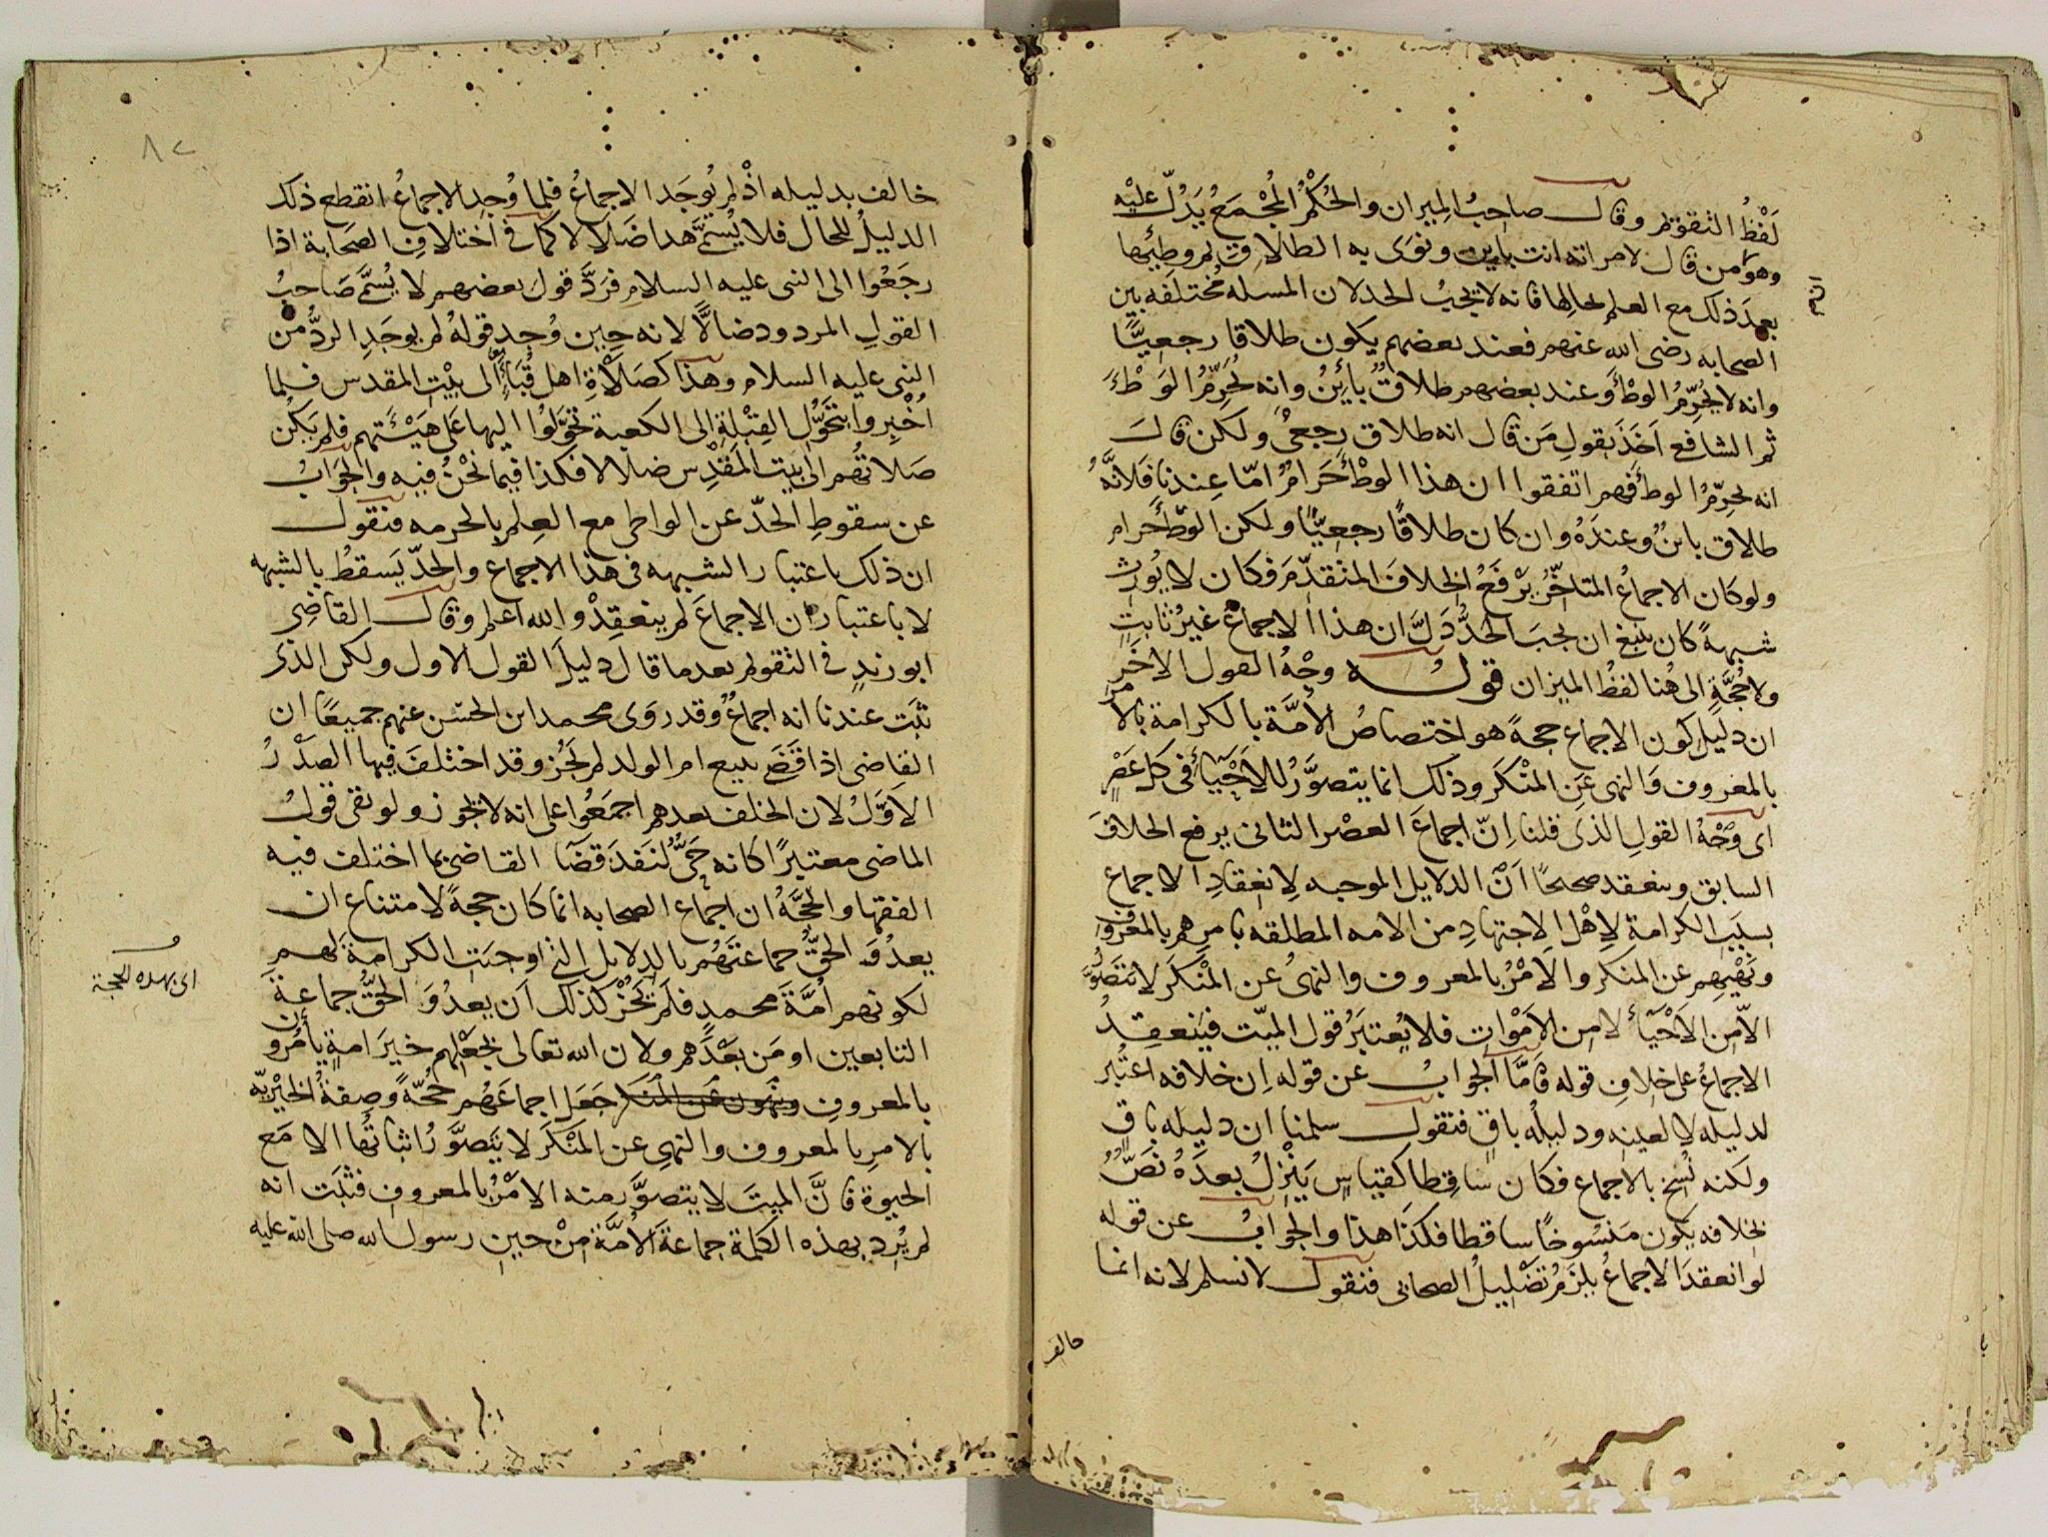 لَفْظُ التقويم وقال صاحِبُ المِيزان والحُكْمُ المُجْمَعُ يَدُلّ عليْه
وهو من قال لامراته انت باين ونَوَى به الطلاق ثم وطِيَها
بعدَ ذلك مع العلم بحالها فانه لا يجبُ الحد لان المسله مختلفه بين
الصحابه رضى الله عنهم فعند بعضهم يكون طلاقا رجعيًّا
وانه لا يُحرِّمُ الوطْأ وعند بعضهم طلاقٌ بائِنٌ وانه يُحرِّمُ الوَطْءَ
ثم الشافعى اَخَذَ بقولِ مَن قال انه طلاق رجعىٌ ولكن قال
انه يحرِّمُ الوطْأ فهم اتفقوا ان هذا الوطْأ حَرامٌ امّا عِندنا فَلِاَنَّهُ
طلاق باينٌ وعندَهُ وان كان طلاقًا رجعيًّا ولكن الوطْأ حرام
ولو كان الاجماعُ المتاخِّرُ يَرْفَعُ الخِلافَ المتقدِّمَ فكان لا يُورِث
شبهةً كان ينبغى ان يجبَ الحَدُّ دَلَّ ان هذا الاجماعَ غيرُ ثابتٍ
ولا حُجَّةٍ الى هُنا لفظُ الميزان قوله وجْهُ القول الاخَرِ
ان دليلَ كون الاجماع حجةً هو اختصاصُ الاُمَّة بالكرامة بالامر
بالمعروف والنهى عَنِ المنْكَر وذلك انما يتصوَّرُ للاَحْيَآءِ فى كل عَصْرٍ
اى وَجْهُ القولِ الذى قلنا اِنّ اجماعَ العصْر الثانى يرفع الخلافَ
السابق وينعقد صحيحًا اَنَّ الدلايل الموجبه لِانعِقادِ الاجماع
بسَبَبِ الكرامةِ لِاَهْلِ الاِجتهادِ من الامه المطلقه بامرِهم بالمعروفِ
ونَهْيِهِم عن المنكر والاَمْرُ بالمعروف والنهىُ عن المنْكَرِ لا يتصَوَّرُ
الاّ من الاَحْيَآءِ لا من الاَمْوات فلا يُعتبَرُ قول الميّت فينعقِدُ
الاجماعُ على خِلافِ قوله فاَمَّا الجوابُ عن قوله اِن خلافه اعتُبِر
لدليله لا لعينِه ودليلُه باقٍ فنقول سلمنا ان دليله باقٍ
ولكنه نُسِخَ بالاجماع فكان ساقِطا كقياسٍ يَنْزِلُ بعدَهُ نَصٌّ
بخلافه يكون مَنسُوخًا ساقطا فكذا هذا والجوابُ عن قوله
لو انعقدَ الاجماعُ يلزمُ تضْلِيلُ الصحابى فنقول لا نسلم لانه انما
خالف
خالف بدليله اذْ لم يُوجَد الاجماعُ فلما وُجِد الاجماعُ انقطع ذلك
الدليلُ للحال فلا يُسَمَّى هذا ضَلالا كما فى اختلافِ الصحابة اذا
رجَعُوا الى النبى عليه السلام فرَدَّ قولَ بعضهم لا يُسَمَّى صَاحبُ
القولِ المردود ضالاًّ لانه حِين وُجِد قولهُ لم يوجَدِ الردُّ من
النبى عليه السلام وهذا كصَلاةِ اهل قُبَاءٍ الى بيْتِ المقدس فلما
اُخْبِروا بتَحَوُّلِ القِبْلةِ الى الكعبة تحَوَّلوا اليها على هَيْئَتِهم فلم يَكنْ
صَلاتُهم الى بَيت المَقْدِس ضلالا فكذا فيما نَحْنُ فيه والجَوابُ
عن سقوطِ الحدّ عن الواطى مع العِلم بالحرمه فنقول
ان ذلك باعتبار الشبهه فى هذا الاجماع والحدّ يَسقطُ بالشبهه
لا باعتبار ان الاجماعَ لم ينعقِدْ والله اعلم وقال القاضِى
ابو زيدٍ فى التقويم بعد ما قال دليلَ القول الاول ولكن الذى
ثَبَت عندنا انه اجماعٌ وقد رَوَى محمد ابن الحسَن عنهم جميعًا ان
القاضى اذا قَضَى ببيع ام الولد لم يَجُز وقد اختلفَ فيها الصدْرُ
الاَوَّلُ لان الخلف بعدهم اجمَعُوا على انه لا يجوز ولو بقى قولُ
الماضى معتبرًا كانه حَىٌّ لنفذَ قضَآ القاضى بما اختلف فيه
الفقها والحجَّةُ ان اجماع الصحابه انما كان حجةً لامتناع ان
يعدُوَ الحقُّ جماعتَهُم بالدلايل التى اوجبَت الكرامةَ لهم
لكونهم اُمَّةَ محمدٍ فلم يَجُزْ كذلك اَن يعدُوَ الحقُّ جماعةَ
التابعين او مَن بعْدَهم ولان الله تعالى بجَعْلِهم خيرَ امةٍ يأمُرُون
بالمعروفِ وينهون عن المنكر جَعَل اجماعَهُم حُجّةً وصِفةُ الخَيْريّه
بالامرِ بالمعروف والنهىِ عن المنْكَر لا يتصَوَّرُ اثباتُها الا مَع
الحيوة فاِنَّ الميتَ لا يتصوَّر منه الامْرُ بالمعروفِ فثبَت انه
لم يُرِد بهذه الكلمة جماعةَ الاُمَّةِ مِنْ حين رسول الله صلى الله عليه
اى بهذه الحجة